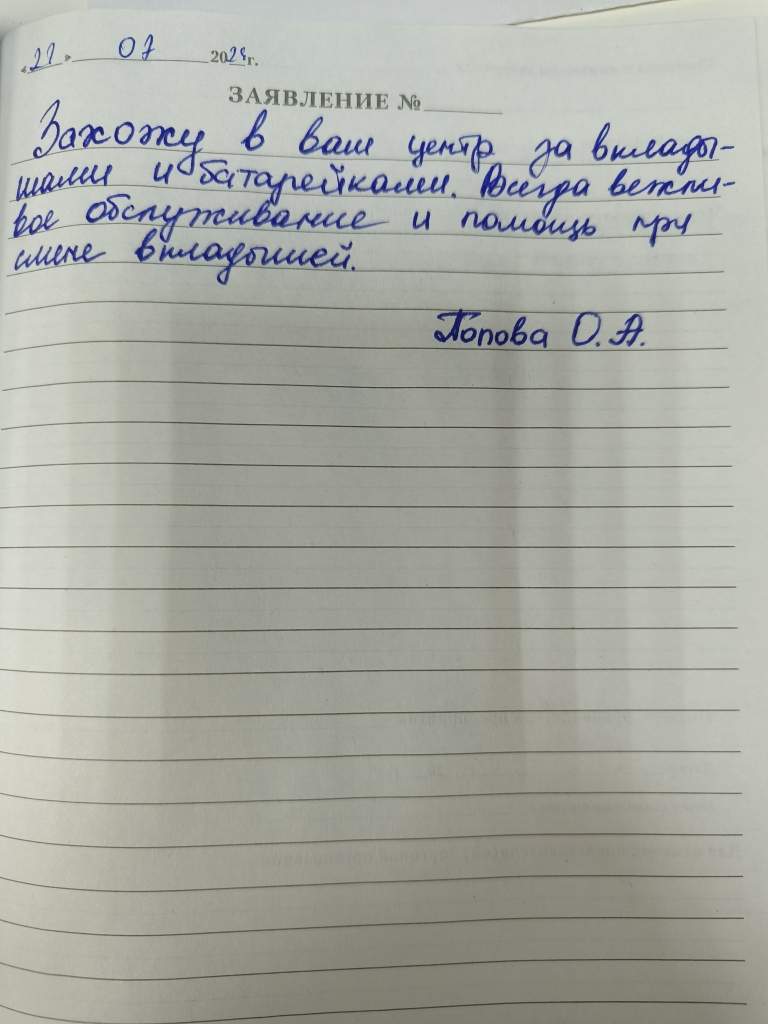 «22» 07 2024 г.
ЗАЯВЛЕНИЕ №
Захожу в ваш центр за вклады-
шами и батарейками. Всегда вежли-
вое обслуживание и помощь при
смене вкладышей.
Попова О. А.